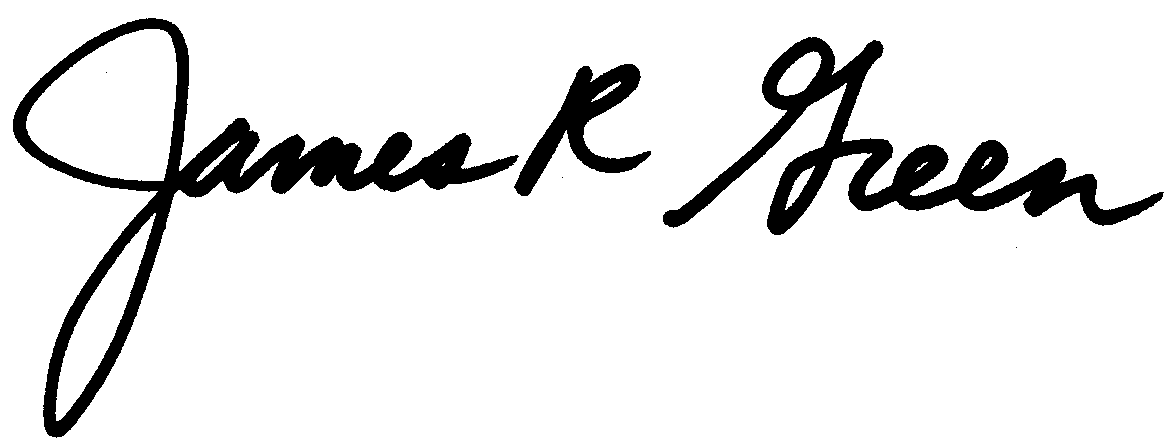 James R Green